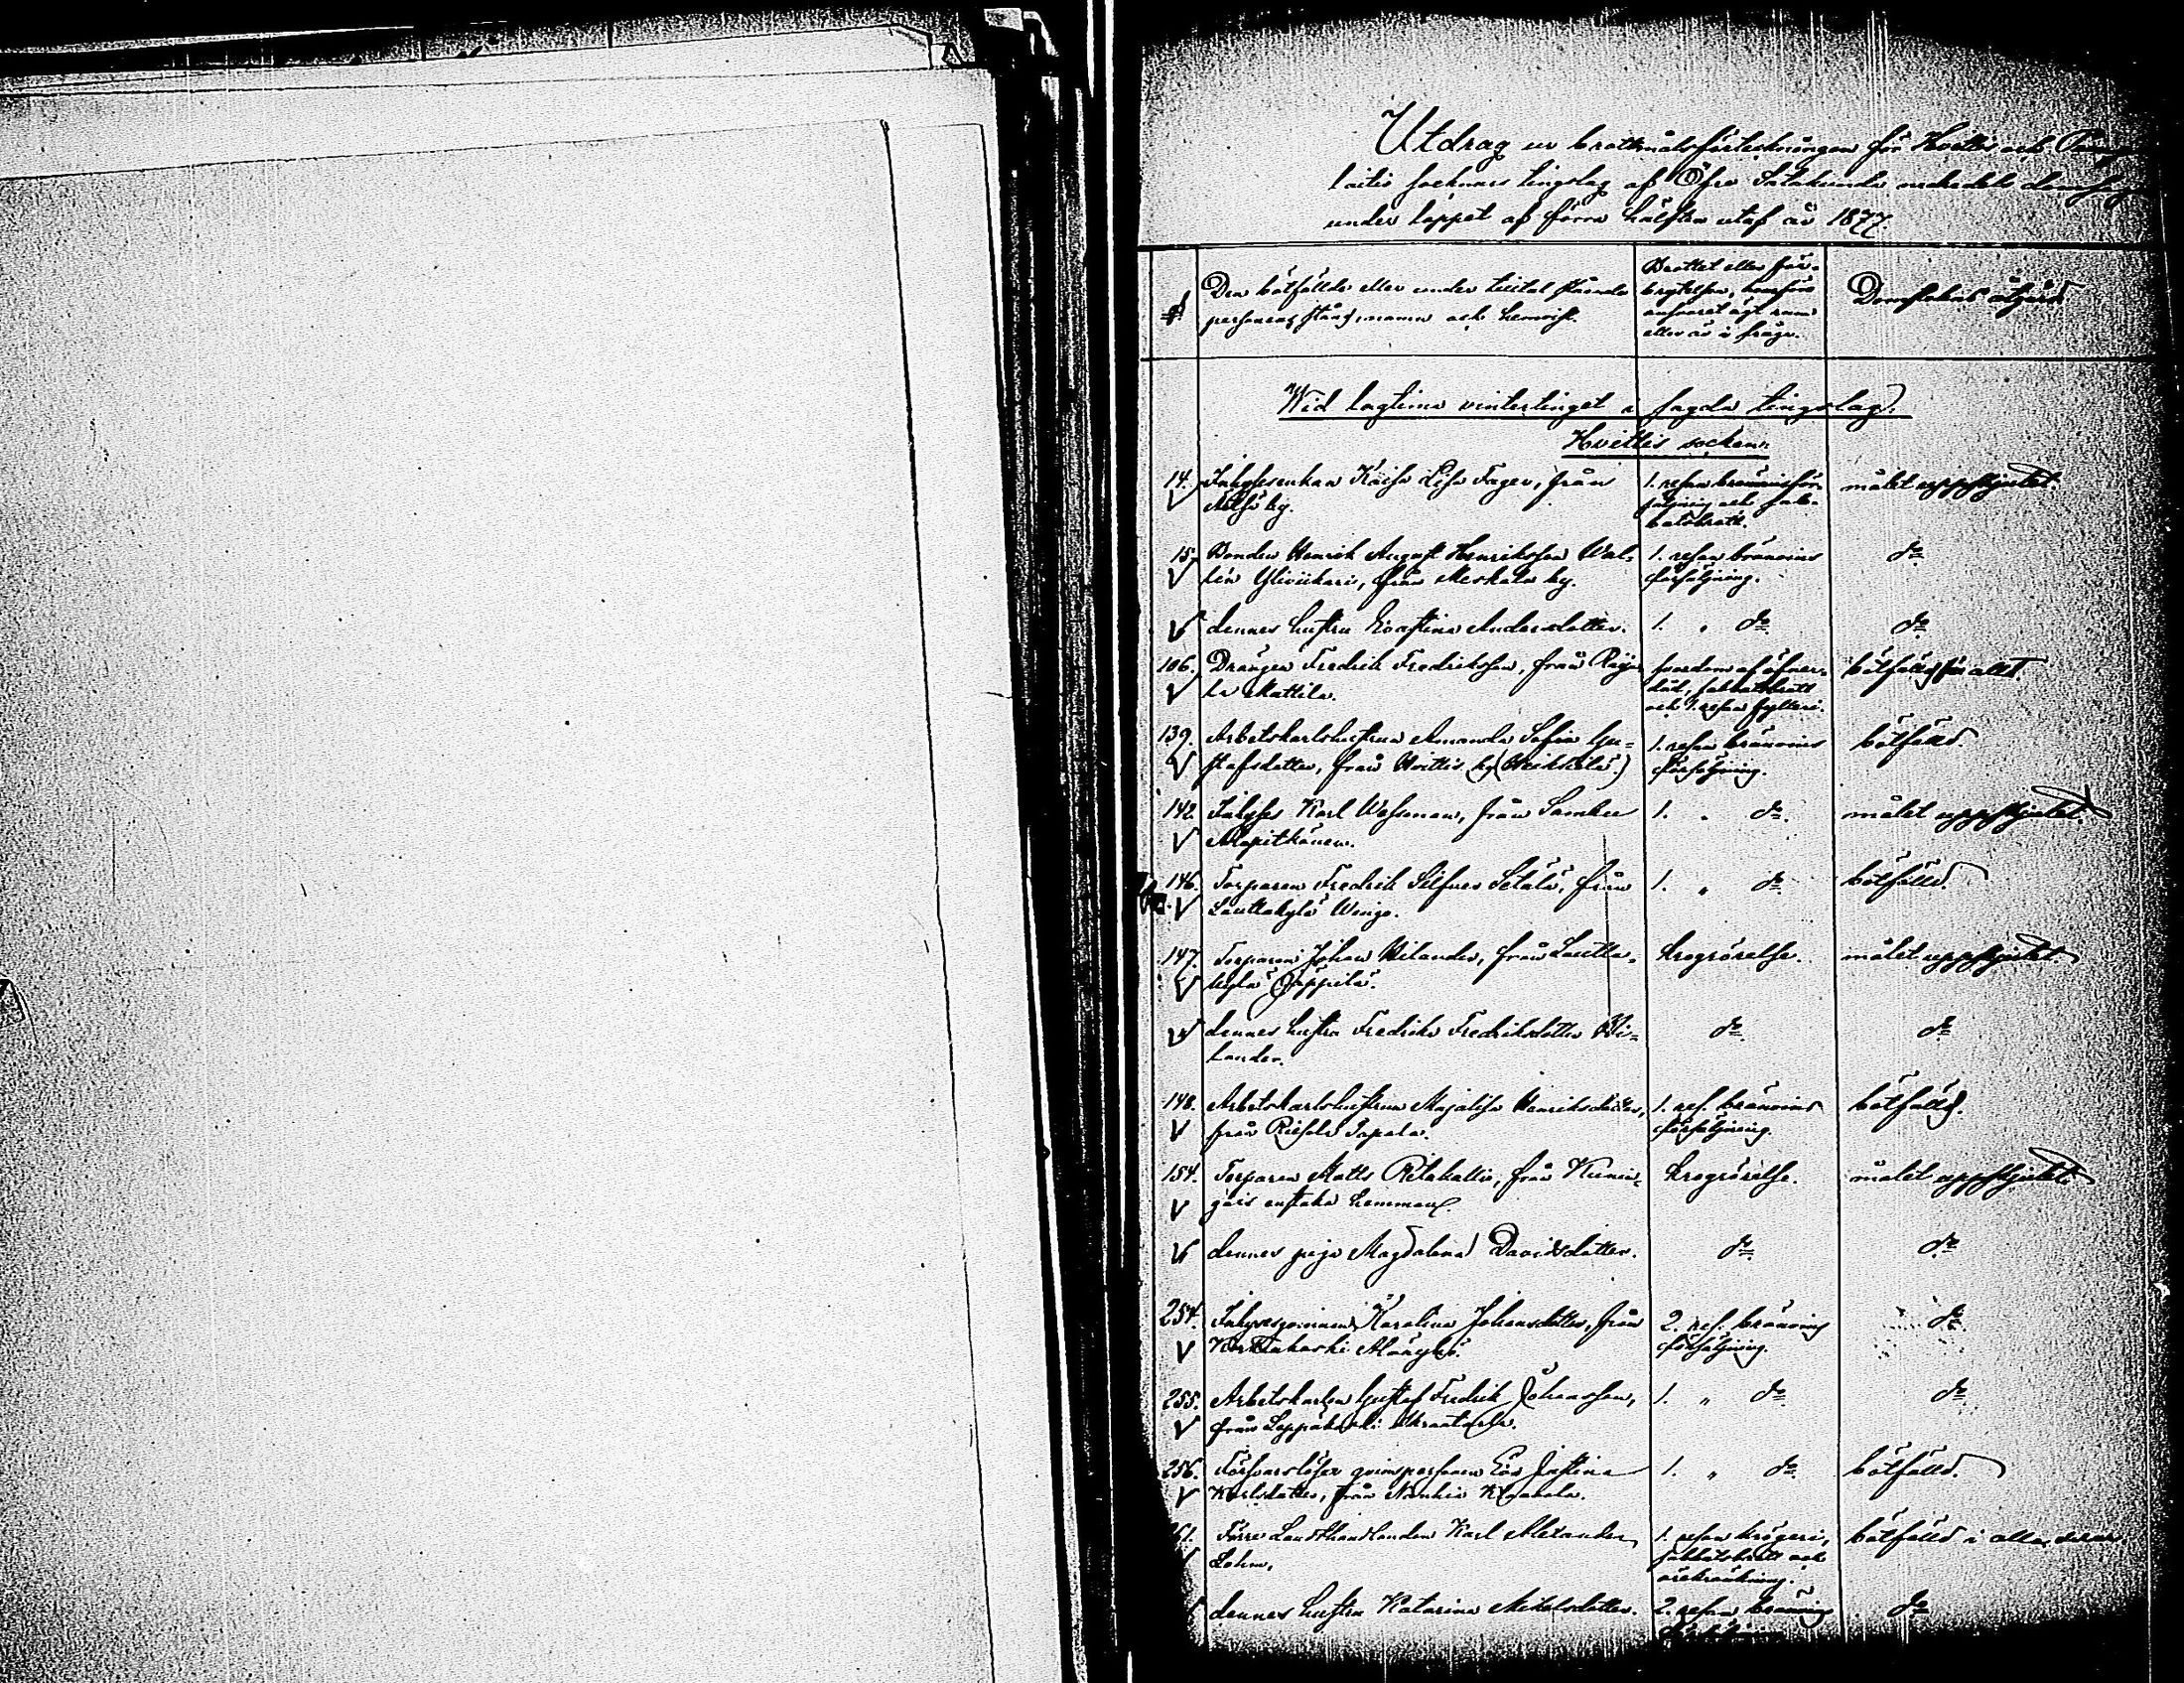 Utdrag ur brottmålsförteckningen för Hvittis och
laitis socknars tingslag af Öfre Satakunda
under loppet af förra hälften utaf år 1877.
Den bötfällde eller under tilltal stående
personens stånd, namn och hemvist.
Brottet eller för-
brytelsen, hvarföre
ansvaret ägt rum
eller är i fråga.
Domstolens åtgärd
Wid lagtima vintertinget i sagda tingslag.
Hvittis socken.
14. Inhysesenkan Kaisa Lisa Fager, från
by.
1. resan bränvinsför-
säljning och sab-
batsbrott.
målet uppskjutet.
15. Bonden Henrik August Henriksson Wal-
lén Yliviikari, från Meskala by.
1. resan bränvins
försäljning.
do
V dennes hustru Evastina Andersdotter.
1. " do
do
106. Drängen Fredrik Fredriksson, från
Mattila.
sabbatsbrott
och 1. resan fylleri.
bötfälld för allt.
139. Arbetskarlshustrun Amanda Sofia Gu-
stafsdotter, från Hvittis by
1. resan bränvins
försäljning.
bötfälld.
142. Inhyses Karl Wessman, från Sambu
1. " do
målet uppskjutet.
146. Torparen Fredrik Silfver Setälä, från
Lauttakylä
1. " do
bötfälld.
147. Torparen Johan Wilander, från Lautta-
kylä
krogrörelse.
målet uppskjutet.
V dennes hustru Fredrika Fredriksdotter Wi-
lander.
do
do
148. Arbetskarlshustrun Majalisa Henriksdotter,
från
1. res. bränvins
försäljning.
bötfälld.
154. Torparen Matts Ritakallio, från Kunin-
gais enstaka hemman.
krogrörelse.
målet uppskjutet.
V dennes piga Magdalena Davidsdotter.
do
do
254. Inhysesqvinnan Karolina Johansdotter, från
2. res. bränvins
försäljning.
do
255. Arbetskarlen Gustaf Fredrik Johansson,
från Leppäkoski
1. " do
do
256. Försvarslösa qvinspersonen Eva Justina
Karlsdotter, från
1. " do
bötfälld.
61. Förre Landthandlanden Karl Alexander
1. resan krögeri,
sabbatsbrott och
ärekränkning.
bötfälld i alla delar
dennes hustru Katarina Mikelsdotter.
2. resan bränvins
do